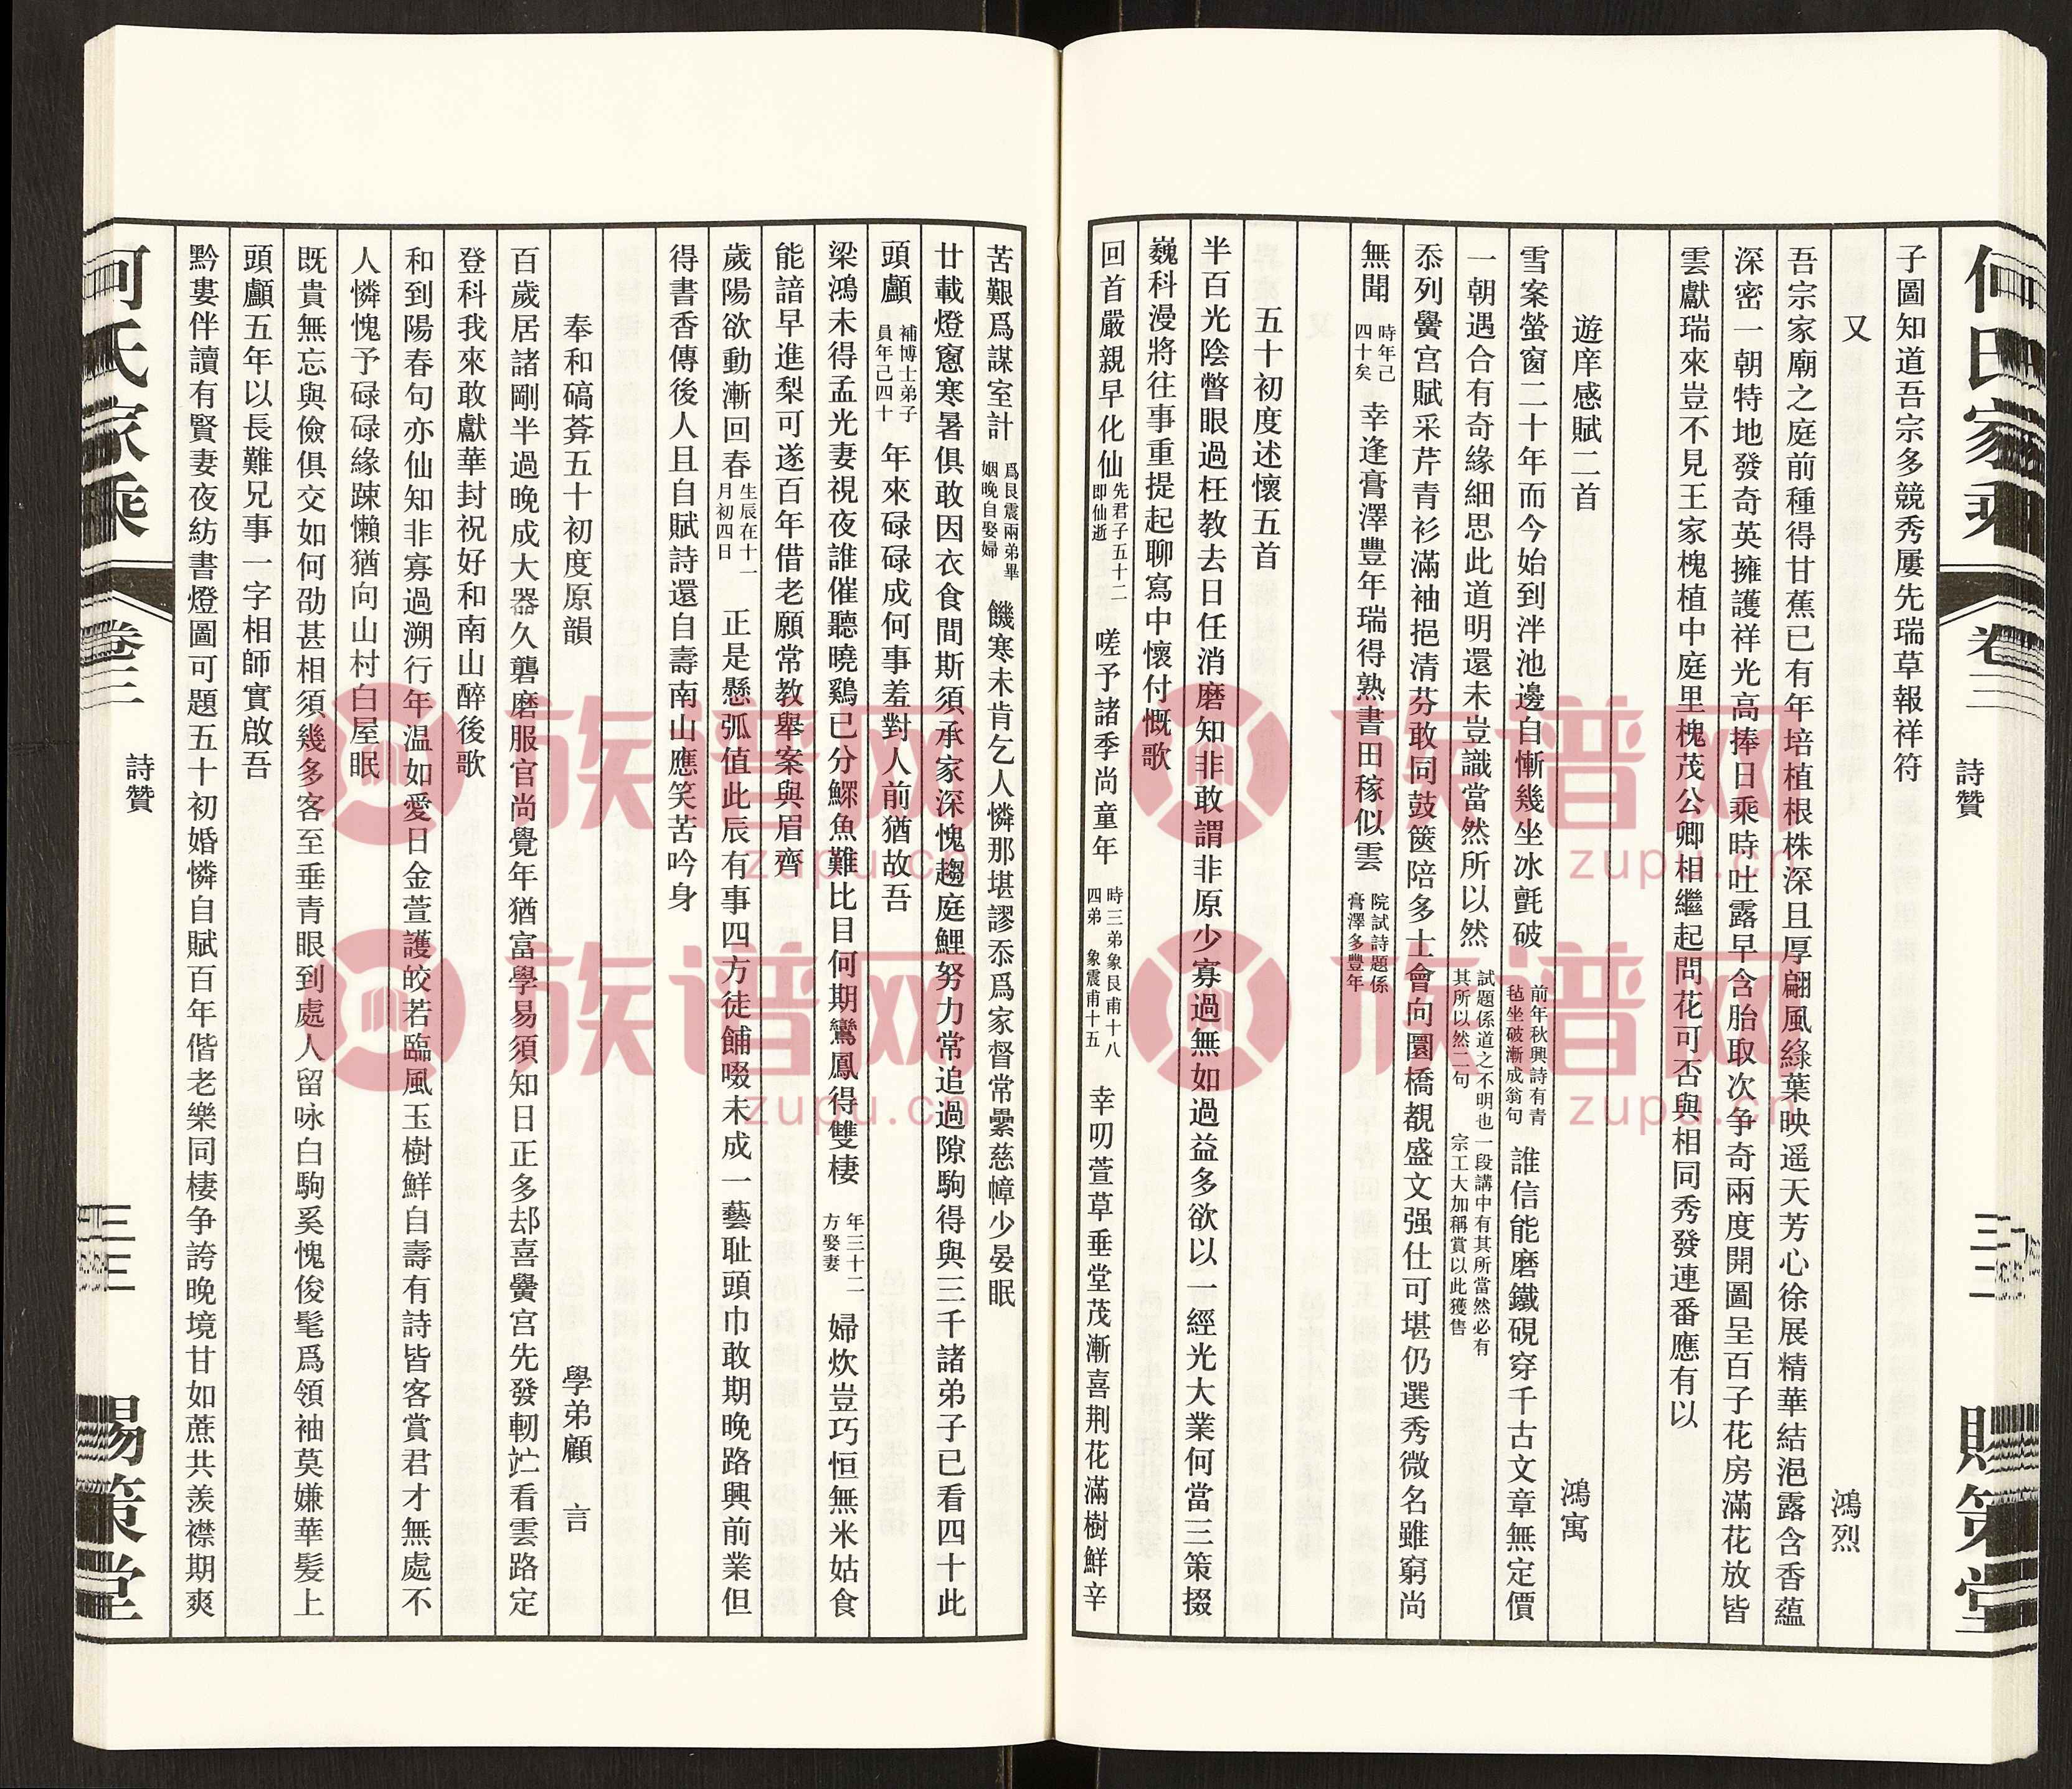 何氏家乘
卷三
詩贊
三二
賜策堂
子圖知道吾宗多競秀屢先瑞草報祥符
又
鴻烈
吾宗家廟之庭前種得甘蕉已有年培植根株深且厚翩風綠葉映遥天芳心徐展精華結浥露含香蘊
深密一朝特地發奇英擁護祥光高捧日乘時吐露早含胎取次争奇兩度開圖呈百子花房滿花放皆
雲獻瑞來豈不見王家槐植中庭里槐茂公卿相繼起問花可否與相同秀發連番應有以
遊庠感賦二首
鴻寓
雪案螢窗二十年而今始到泮池邊自慚幾坐冰氈破 前年秋興詩有青毡坐破漸成翁句 誰信能磨鐵硯穿千古文章無定價
一朝遇合有奇緣細思此道明還未豈識當然所以然 試題係道之不明也一段講中有其所當然必有其所以然二句 宗工大加稱賞以此獲售
忝列黌宫賦采芹青衫滿袖挹清芬敢同鼓篋陪多士會向圜橋覩盛文强仕可堪仍選秀微名雖窮尚
無聞 時年己四十矣 幸逢膏澤豐年瑞得熟書田稼似雲 院試詩題係膏澤多豐年
五十初度述懷五首
半百光陰瞥眼過枉教去日任消磨知非敢謂非原少寡過無如過益多欲以一經光大業何當三策掇
巍科漫將往事重提起聊寫中懷付慨歌
回首嚴親早化仙 先君子五十二即仙逝 嗟予諸季尚童年 時三弟象艮甫十八四弟 象震甫十五 幸叨萱草垂堂茂漸喜荆花滿樹鮮辛
苦艱爲謀室計 爲艮震兩弟畢姻晚自娶婦 饑寒未肯乞人憐那堪謬忝爲家督常纍慈幃少晏眠
廿載燈窻寒暑俱敢因衣食間斯須承家深愧趨庭鯉努力常追過隙駒得與三千諸弟子已看四十此
頭顱 補博士弟子員年己四十 年來碌碌成何事羞對人前猶故吾
梁鴻未得孟光妻視夜誰催聽曉鷄已分鰥魚難比目何期鸞鳳得雙棲 年三十二方娶妻 婦炊豈巧恒無米姑食
能諳早進梨可遂百年借老願常教舉案與眉齊
歲陽欲動漸回春 生辰在十一月初四日 正是懸弧值此辰有事四方徒餔啜未成一藝耻頭巾敢期晚路興前業但
得書香傳後人且自賦詩還自壽南山應笑苦吟身
奉和碻葊五十初度原韻
學弟顧 言
百歲居諸剛半過晚成大器久礱磨服官尚覺年猶富學易須知日正多却喜黌宫先發軔竚看雲路定
登科我來敢獻華封祝好和南山醉後歌
和到陽春句亦仙知非寡過溯行年温如愛日金萱護皎若臨風玉樹鮮自壽有詩皆客賞君才無處不
人憐愧予碌碌緣踈懶猶向山村白屋眠
既貴無忘與儉俱交如何劭甚相須幾多客至垂青眼到處人留咏白駒奚愧俊髦爲領袖莫嫌華髮上
頭顱五年以長難兄事一字相師實啟吾
黔婁伴讀有賢妻夜紡書燈圖可題五十初婚憐自賦百年偕老樂同棲争誇晚境甘如蔗共羨襟期爽
何氏家乘
卷三
詩贊
三三
賜策堂
族谱网
zupu.cn
族谱网
zupu.cn
族谱网
zupu.cn
族谱网
zupu.cn